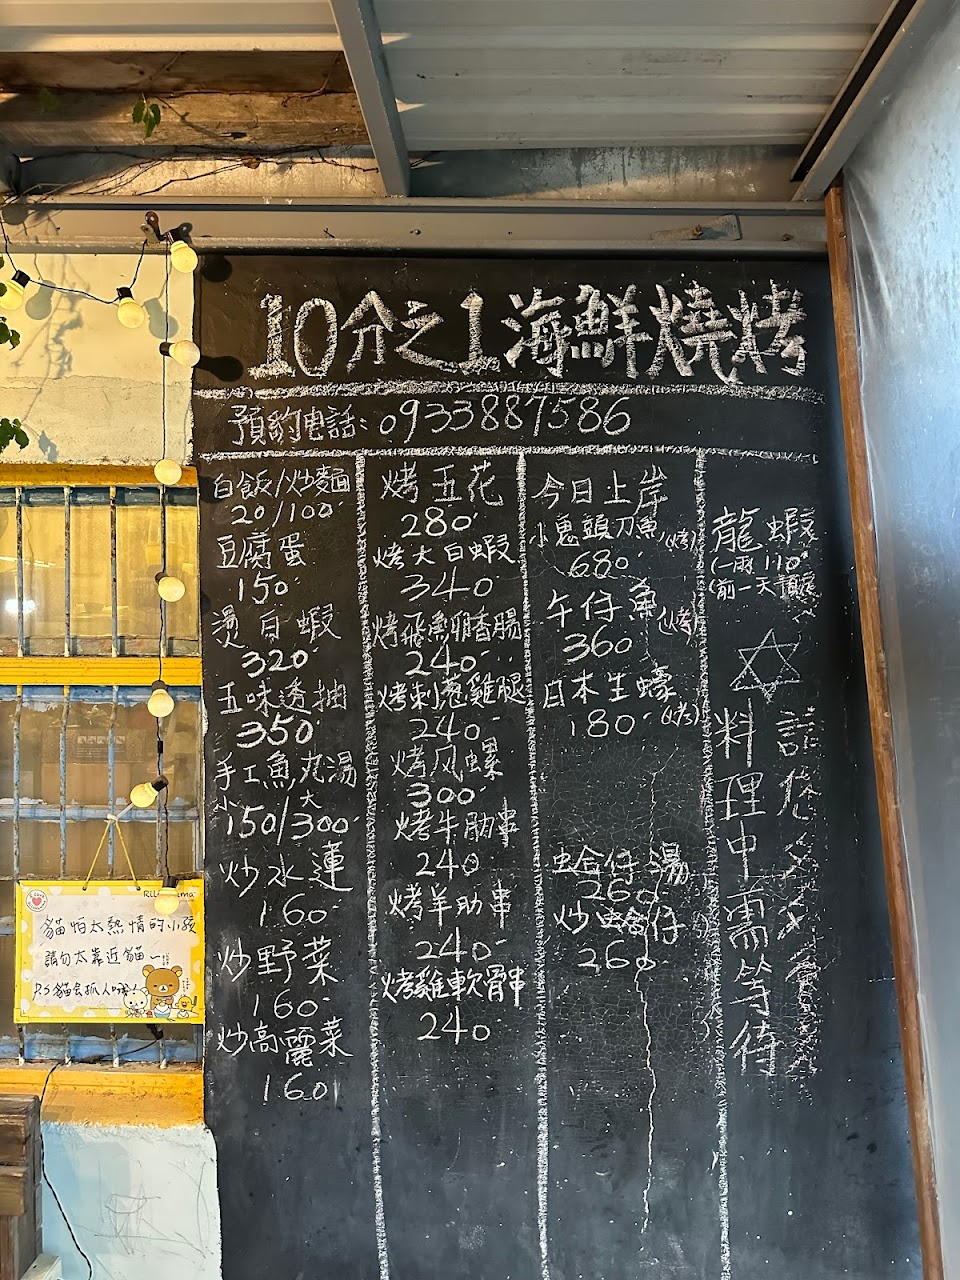 10分之1海鮮燒烤
預約電話:0933887586
白飯/炒麵
20/100
豆腐蛋
150
燙白蝦
320
五味透抽
350
手工魚丸湯
小 大
150/300
炒水蓮
160
炒野菜
160
炒高麗菜
160
烤五花
280
烤大白蝦
340
烤飛魚卵香腸
240
烤刺蔥雞腿
240
烤风螺
300
烤牛肋串
240
烤羊肋串
240
烤雞軟骨串
240
今日上岸
小鬼頭刀魚(烤)
680
午仔魚(烤)
360
日本生蠔(烤)
180
蛤仔湯
260
炒蛤仔
260
龍蝦
(一兩110
(前一天預定
料理中需等待
請
貓怕太熱情的小孩
請勿太靠近貓~
P.S貓會抓人哦!